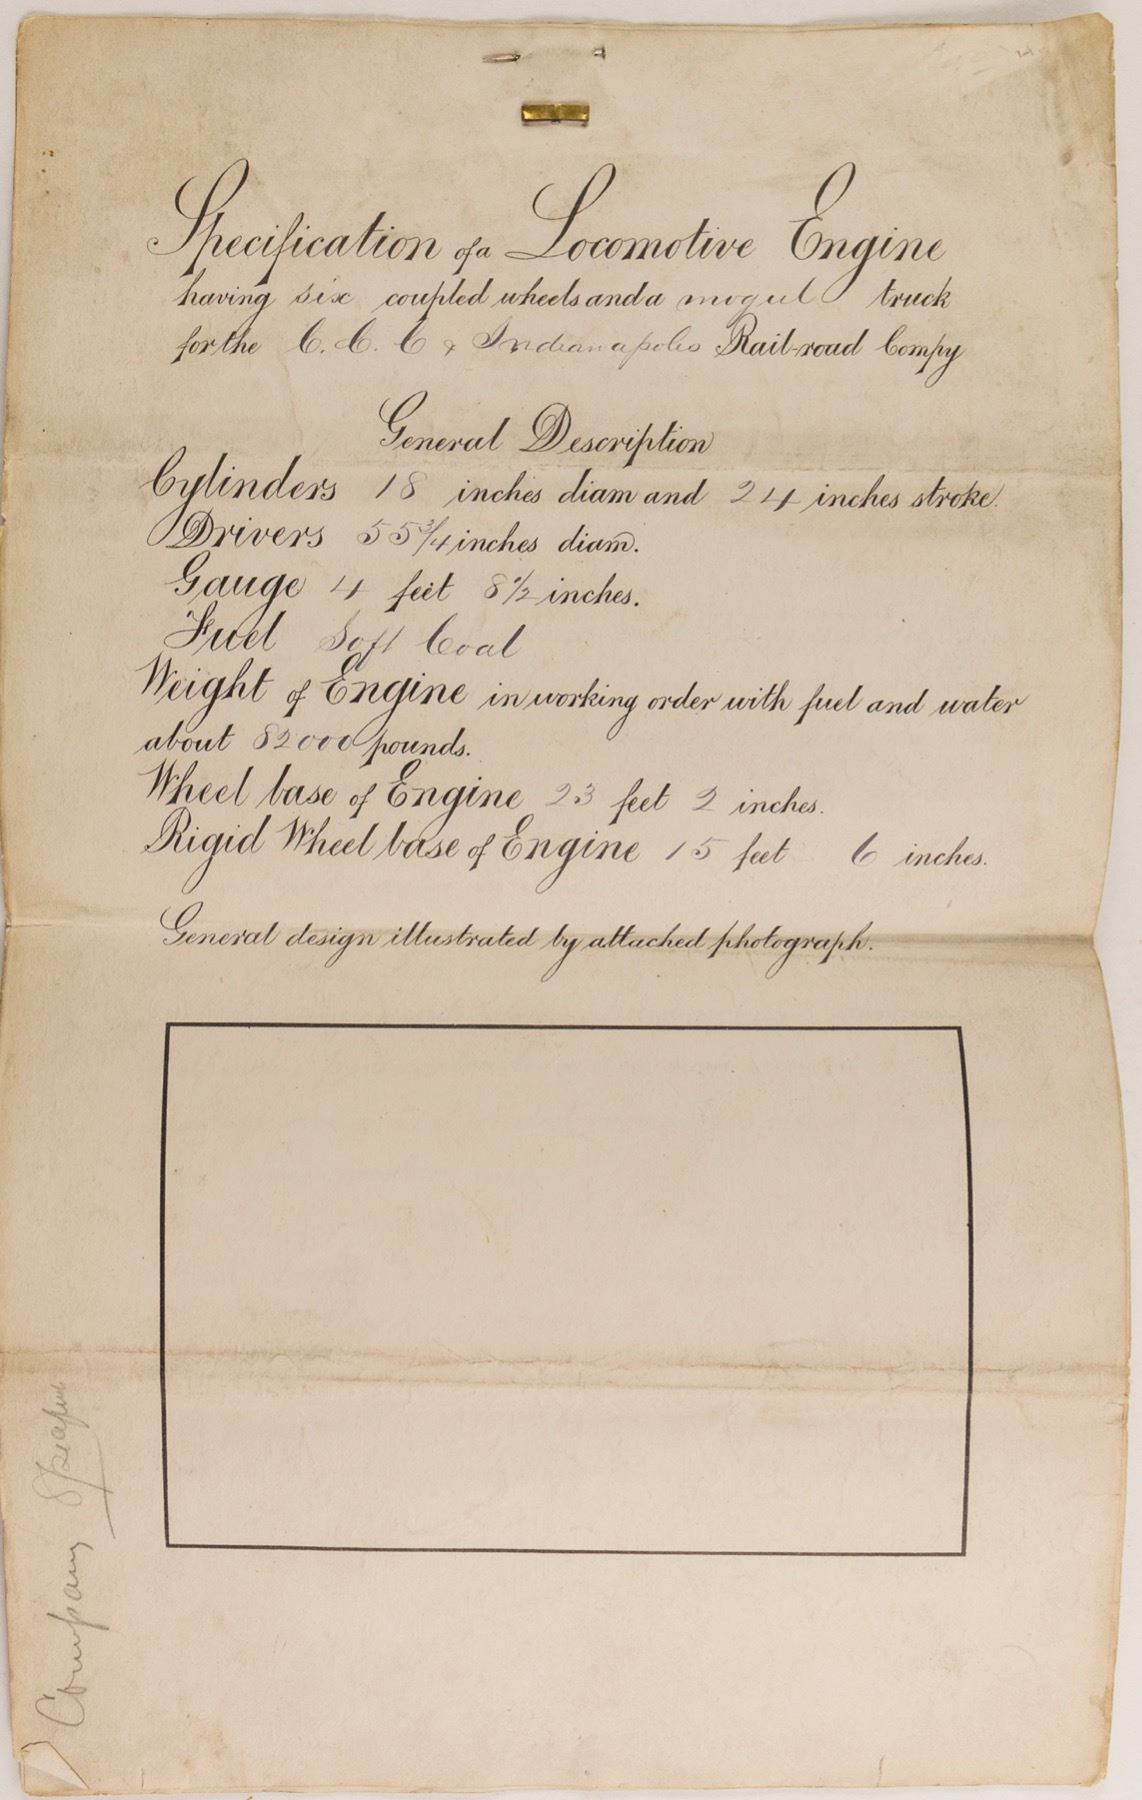 Specification of a Locomotive Engine
having six coupled wheels and a mogul truck
for the C. C. C & Indianapolis Rail-road Compy
General Description
Cylinders 18 inches diam and 24 inches stroke.
Drivers 55 3/4 inches diam.
Gauge 4 feet 8 1/2 inches.
Fuel Soft Coal
Weight of Engine in working order with fuel and water
about 82000 pounds.
Wheel base of Engine 23 feet 2 inches.
Rigid Wheel base of Engine 15 feet 6 inches.
General design illustrated by attached photograph.
Company